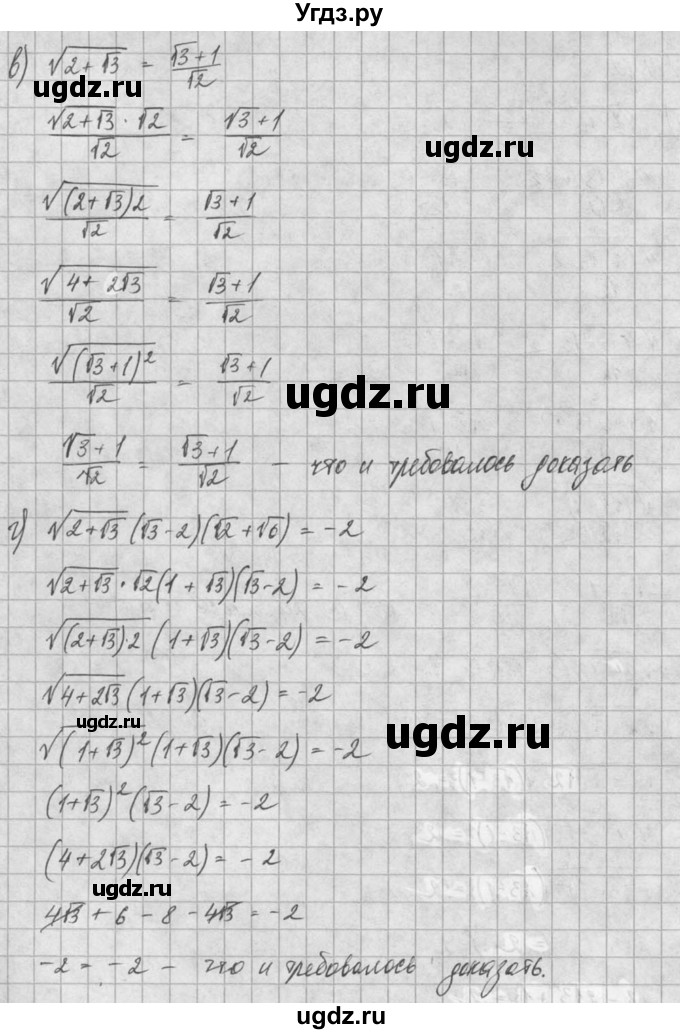 Угдз.ру
в) √(2+√3) = (√3+1)/√2
ugdz.ru
(√(2+√3) · √2)/√2 = (√3+1)/√2
ugdz.ru
√((2+√3)2)/√2 = (√3+1)/√2
√(4+2√3)/√2 = (√3+1)/√2
√((√3+1)²)/√2 = (√3+1)/√2
ugdz.ru
(√3+1)/√2 = (√3+1)/√2 – что и требовалось доказать
г) √(2+√3)(√3-2)(√2+√6) = -2
√(2+√3)·√2(1+√3)(√3-2) = -2
√((2+√3)·2)(1+√3)(√3-2) = -2
√(4+2√3)(1+√3)(√3-2) = -2
ugdz.ru
√((1+√3)²)(1+√3)(√3-2) = -2
ugdz.ru
(1+√3)²(√3-2) = -2
(4+2√3)(√3-2) = -2
ugdz.ru
4√3+6-8-4√3 = -2
-2 = -2 – что и требовалось доказать.
ugdz.ru